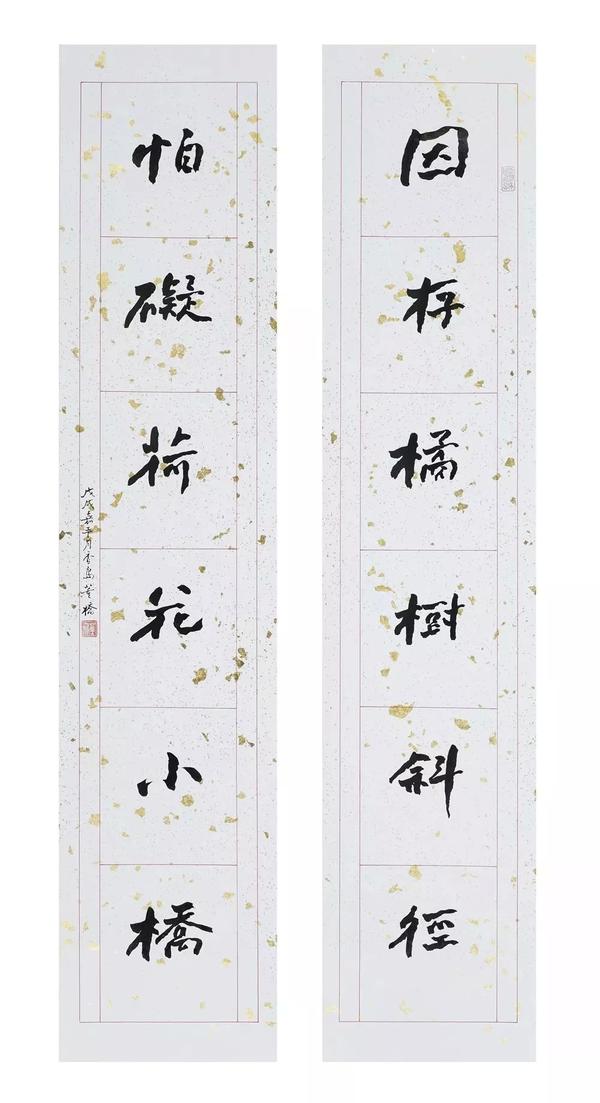 因存橘樹斜徑
怕礙荷花小橋
戊戌嘉平月香島董橋